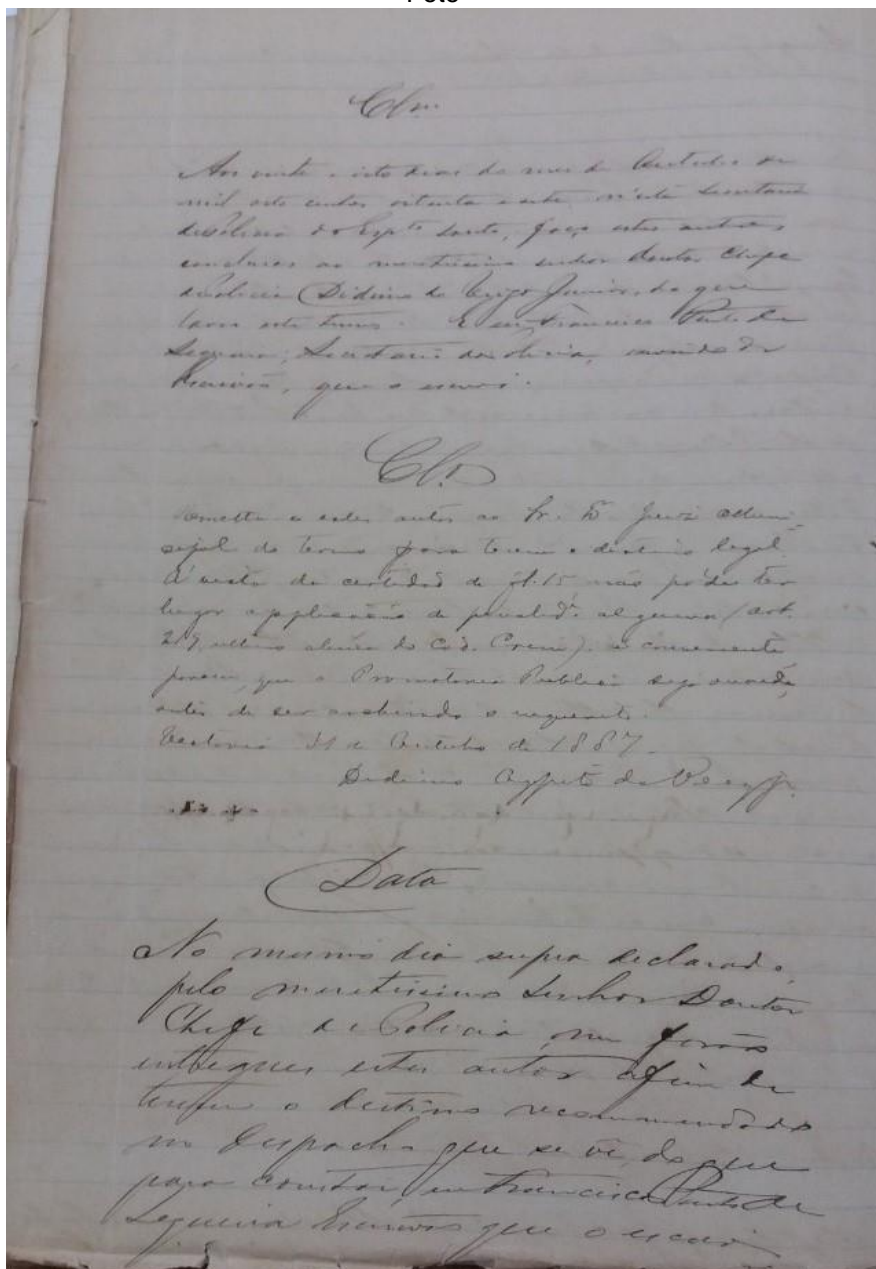 Clm.
Aos vinte e oito dias do mes de Outubro de
mil oito centos oitenta e sete, n'esta Secretaria
de Policia do Espto Santo, faço estes autos
conclusos ao meretissimo senhor doutor Chefe
de Policia Didimo da Veiga Junior, do que
lavro este termo. E eu, Francisco de
Sequeira, Secretario da Policia, servindo de
Escrivão, que o escrevi.
Cls.
Remetta-se estes autos ao Sr. Dr. Juiz Muni-
cipal do termo para terem o destino legal.
A' vista da certidão de fl. 15 não póde ter
lugar applicação de penalide. alguma (art.
219, ultima alinea do Cod. Crim.). É conveniente
porem, que a Promotoria Publica seja ouvida,
antes de ser archivado o inquerito.
Victoria 31 de Outubro de 1887.
Didimo Agapito da Veiga Jr.
Data
No mesmo dia supra declarado,
pelo meretissimo Senhor Doutor
Chefe de Policia, me forão
entregues estes autos afim de
terem o destino recommendado
no despacho que se vê, do que
para constar, eu Francisco de
Sequeira Escrivão que o escrevi